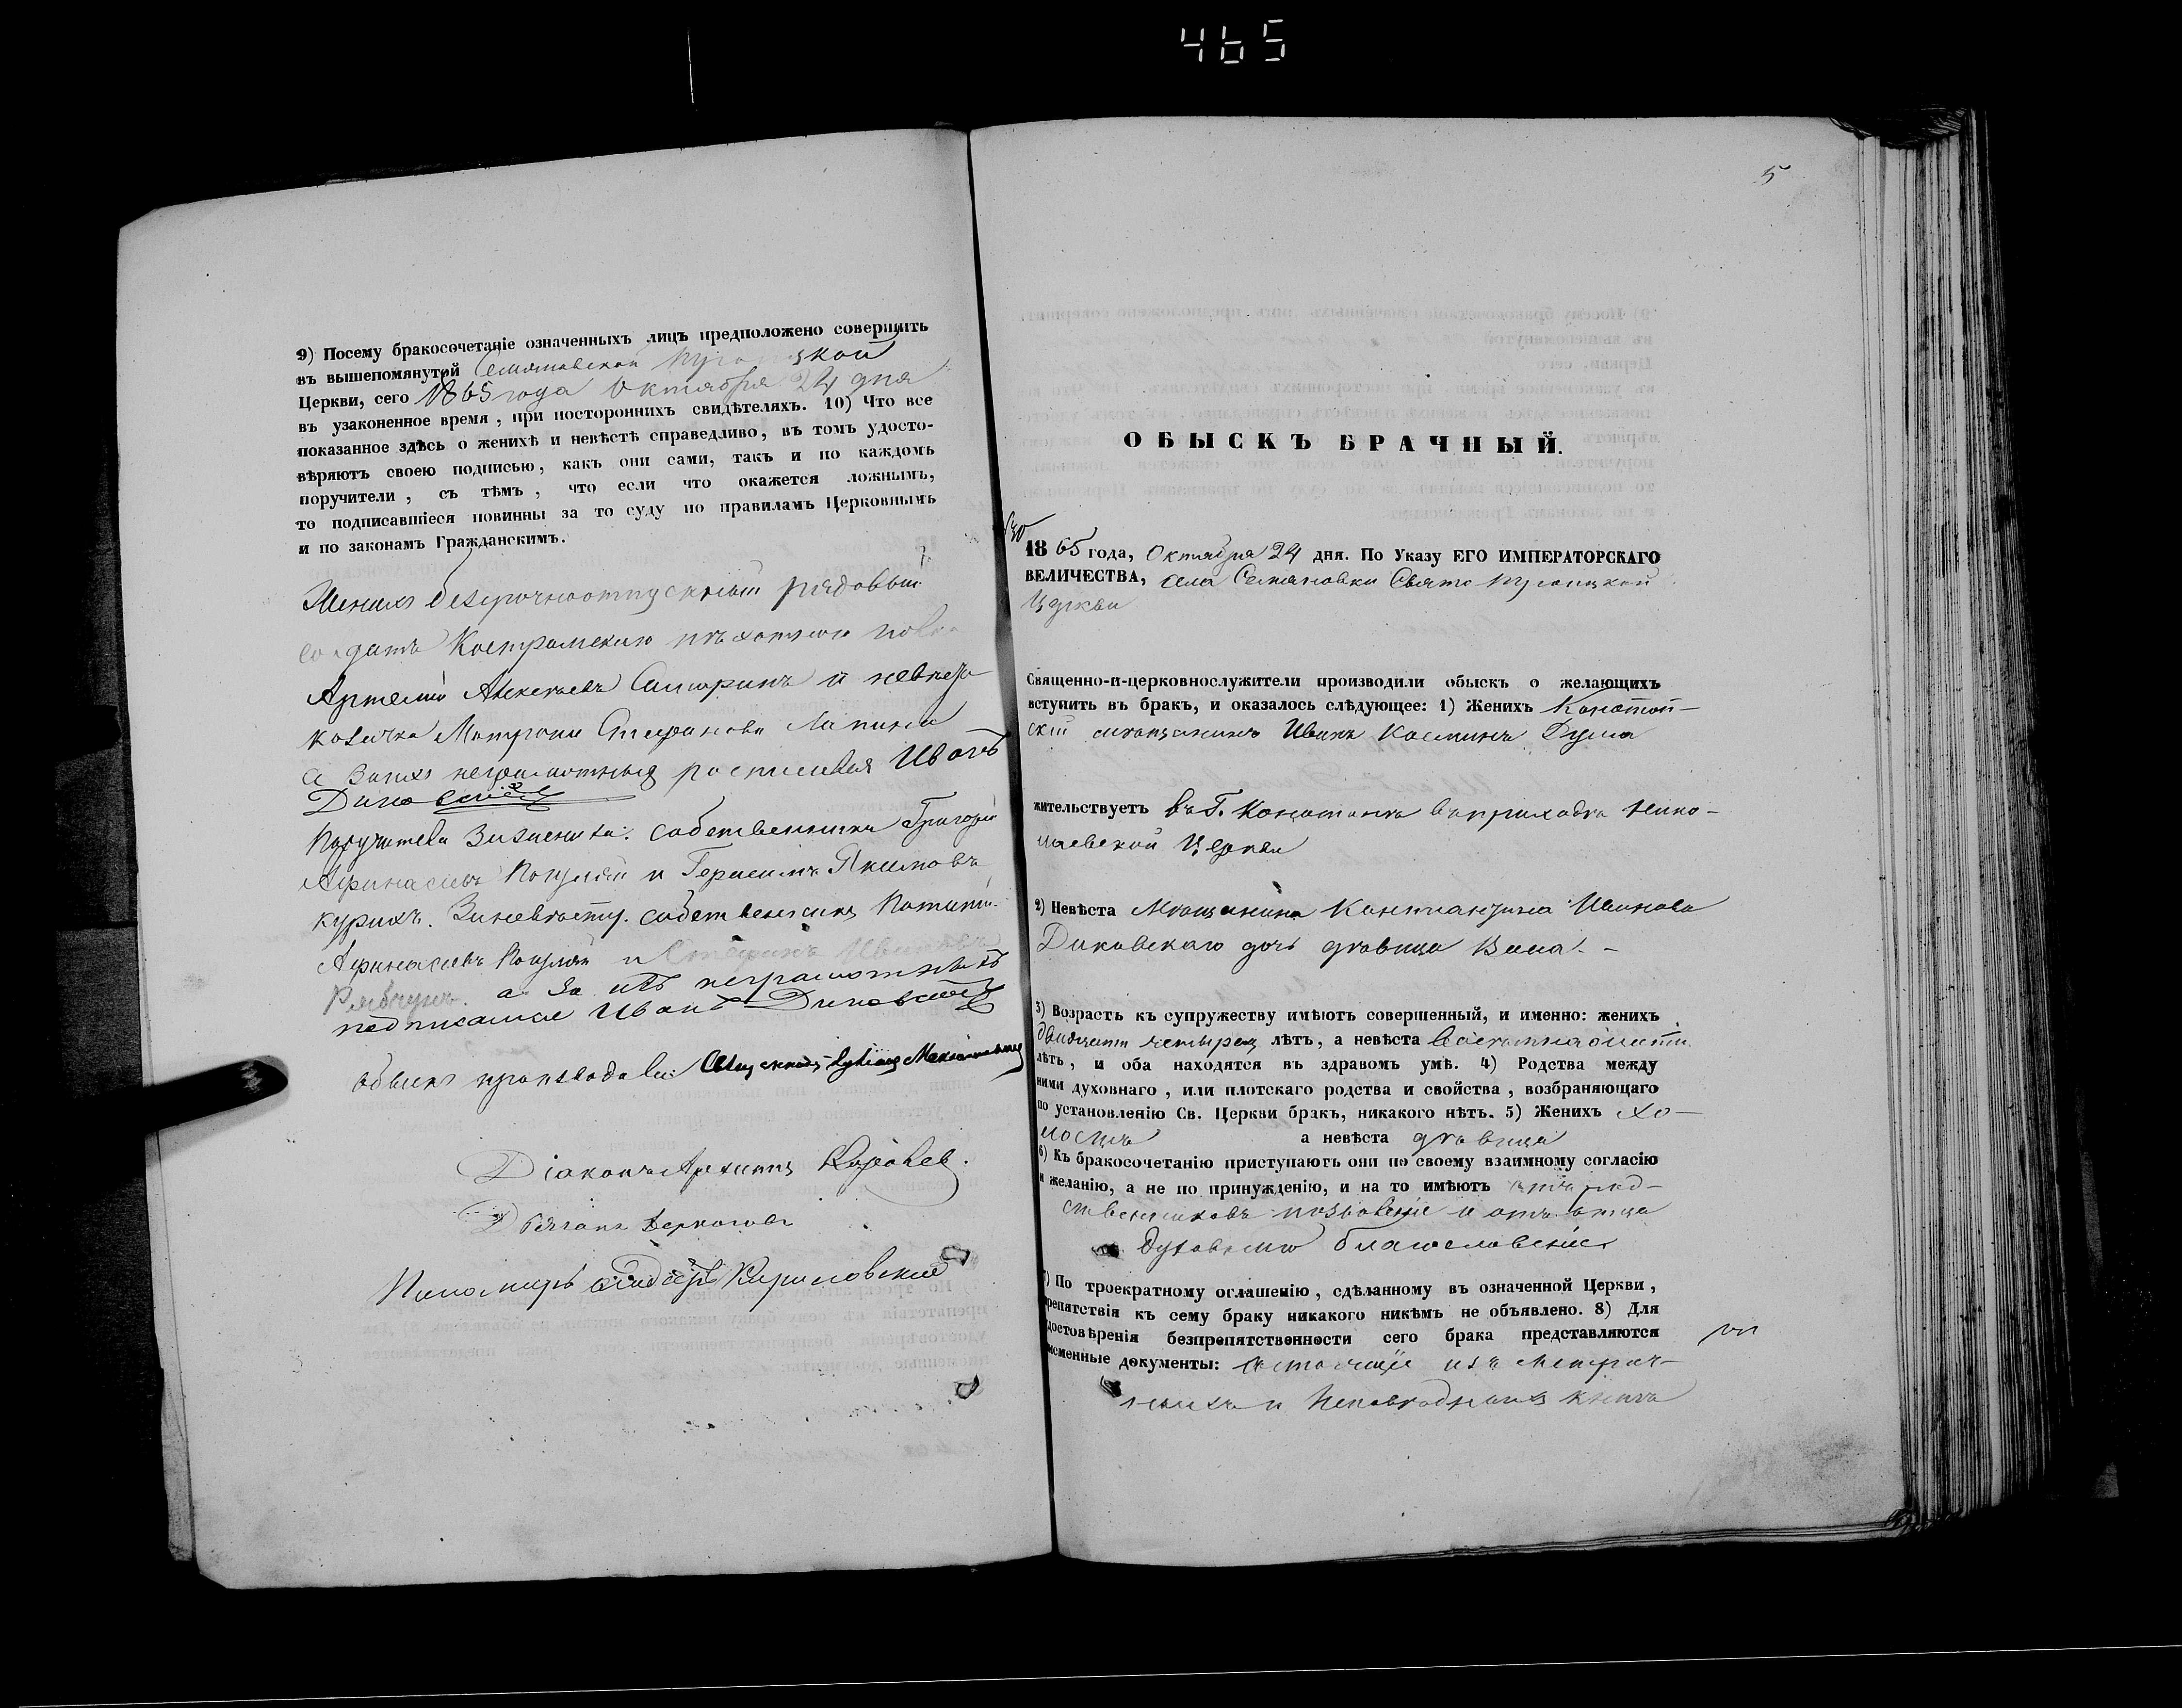 465
9) Посему бракосочетаніе означенныхъ лицъ предположено совершить
въ вышепомянутой Семяновской Троицкой
Церкви, сего 1865 года Октября 24 дня
въ узаконенное время, при постороннихъ свидѣтеляхъ. 10) Что все
показанное здѣсь о женихѣ и невѣстѣ справедливо, въ томъ удосто-
вѣряютъ своею подписью, какъ они сами, такъ и по каждомъ
поручители, съ тѣмъ, что если что окажется ложнымъ,
то подписавшіеся повинны за то суду по правиламъ Церковнымъ
и по законамъ Гражданскимъ.
Женихъ безсрочноотпускный рядовый
солдатъ Костромскаго пѣхотнаго полка
Артемій Алексѣевъ и невѣста
козачка Матрона Стефанова Лапина
а за нихъ неграмотныхъ росписался Иванъ
Диковскій
Поручители по женихѣ: собственники Григорій
Афанасіевъ и Герасимъ Якимовъ
По невѣсту: собственники
Афанасіевъ и Стефанъ Ивановъ
а за нихъ неграмотныхъ
подписался Иванъ Диковскій
обыскъ производили: Священникъ
Діаконъ
Дьячокъ
Пономарь Кириловскій
5
ОБЫСКЪ БРАЧНЫЙ.
1865 года, Октября 24 дня. По Указу ЕГО ИМПЕРАТОРСКАГО
ВЕЛИЧЕСТВА, села Семяновки Свято Троицкой
Церкви
Священно-и-церковнослужители производили обыскъ о желающихъ
вступить въ бракъ, и оказалось слѣдующее: 1) Женихъ Конотоп-
скій мѣщанинъ Иванъ Косминъ Дума
жительствуетъ въ Г. Конотопѣ въ приходѣ Нико-
лаевской Церкви
2) Невѣста Мѣщанина Константина Иванова
Диковскаго дочь дѣвица Васса
3) Возрастъ къ супружеству имѣютъ совершенный, и именно: женихъ
двадцати четырехъ лѣтъ, а невѣста восемнадцати
лѣтъ, и оба находятся въ здравомъ умѣ. 4) Родства между
ними духовнаго, или плотскаго родства и свойства, возбраняющаго
по установленію Св. Церкви бракъ, никакого нѣтъ. 5) Женихъ хо-
лостъ а невѣста дѣвица
6) Къ бракосочетанію приступаютъ они по своему взаимному согласію
и желанію, а не по принужденію, и на то имѣютъ отъ род-
ственниковъ позволеніе и отъ отца
духовнаго благословеніе
7) По троекратному оглашенію, сдѣланному въ означенной Церкви,
препятствія къ сему браку никакого никѣмъ не объявлено. 8) Для
удостовѣренія безпрепятственности сего брака представляются
письменные документы: состоящіе изъ метрич-
ныхъ и исповѣдныхъ книгъ